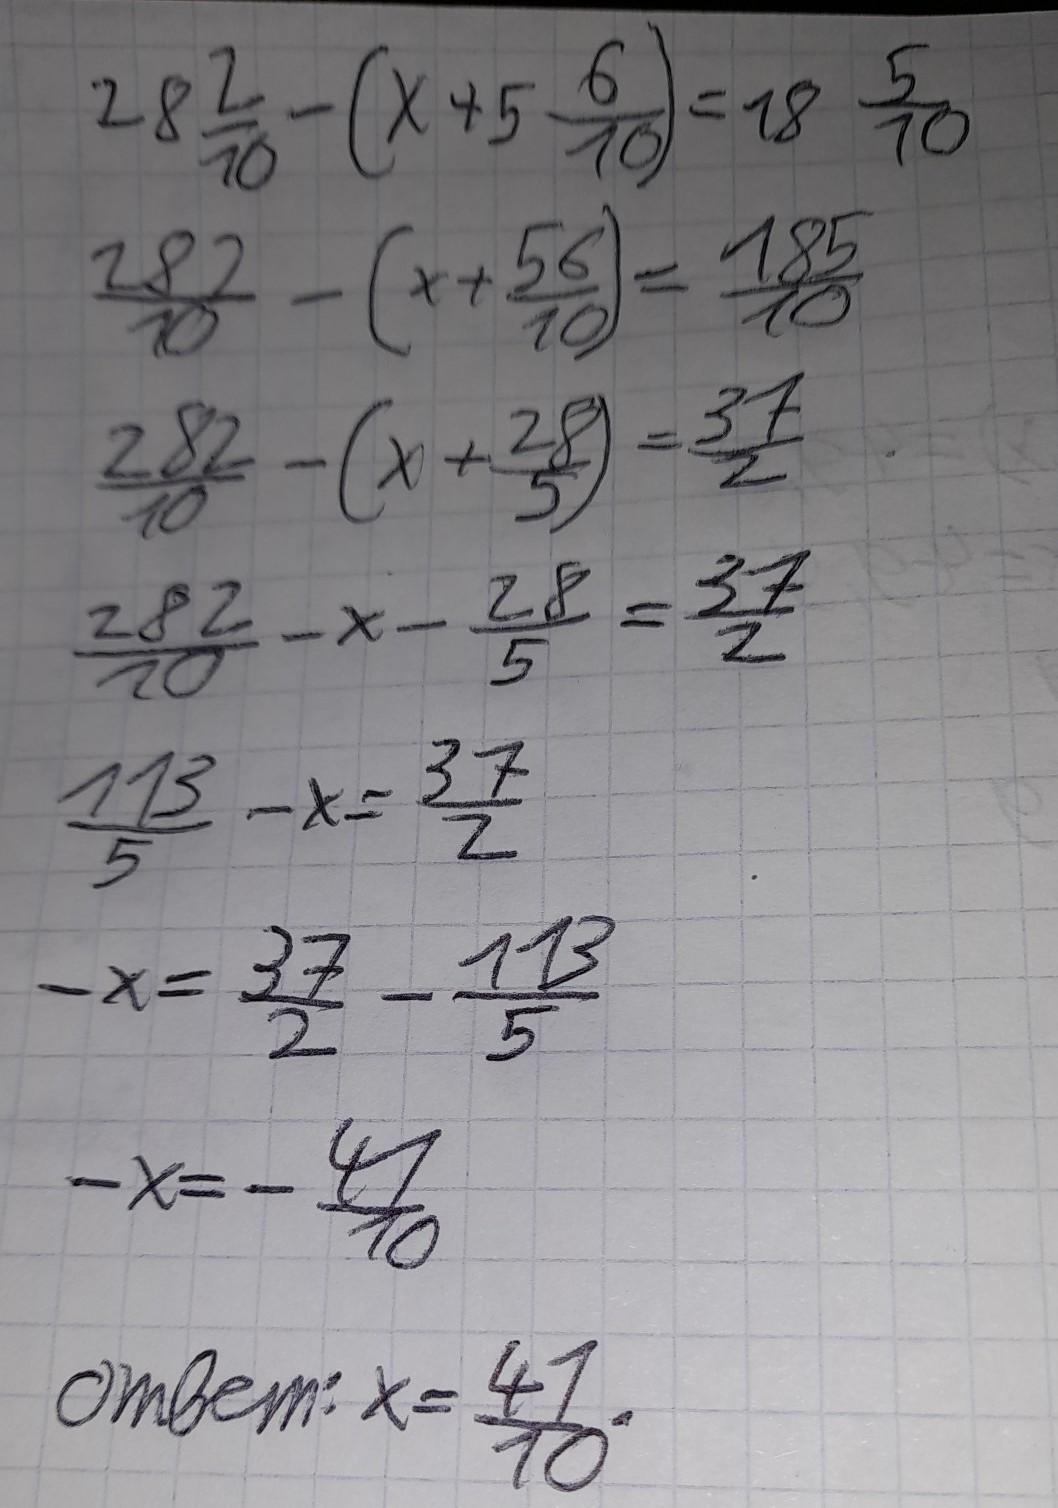 28 2/10 - (x + 5 6/10) = 18 5/10
282/10 - (x + 56/10) = 185/10
282/10 - (x + 28/5) = 37/2
282/10 - x - 28/5 = 37/2
113/5 - x = 37/2
-x = 37/2 - 113/5
-x = - 41/10
ответ: x = 41/10.